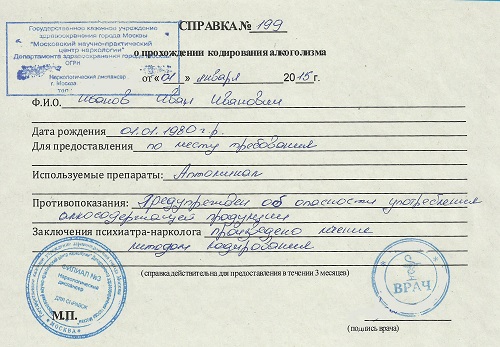 СПРАВКА № 199
Государственное казенное учреждение
здравоохранения города Москвы
"Московский научно-практический
центр наркологии"
Департамента здравоохранения города Москвы
ОГРН
Наркологический диспансер
г. Москва
тел.
о прохождении кодирования алкоголизма
от «01» января 2015 г.
Ф.И.О. Иванов Иван Иванович
Дата рождения 01.01.1980 г.р.
Для предоставления по месту требования
Используемые препараты: Аптоминал
Противопоказания: Предупрежден об опасности употребления
алкосодержащей продукции
Заключения психиатра-нарколога произведено лечение
методом кодирования
(справка действительна для предоставления в течении 3 месяцев)
ФИЛИАЛ №3
Наркологический
диспансер
ДЛЯ СПРАВОК
МОСКВА
ВРАЧ
М.П.
(подпись врача)